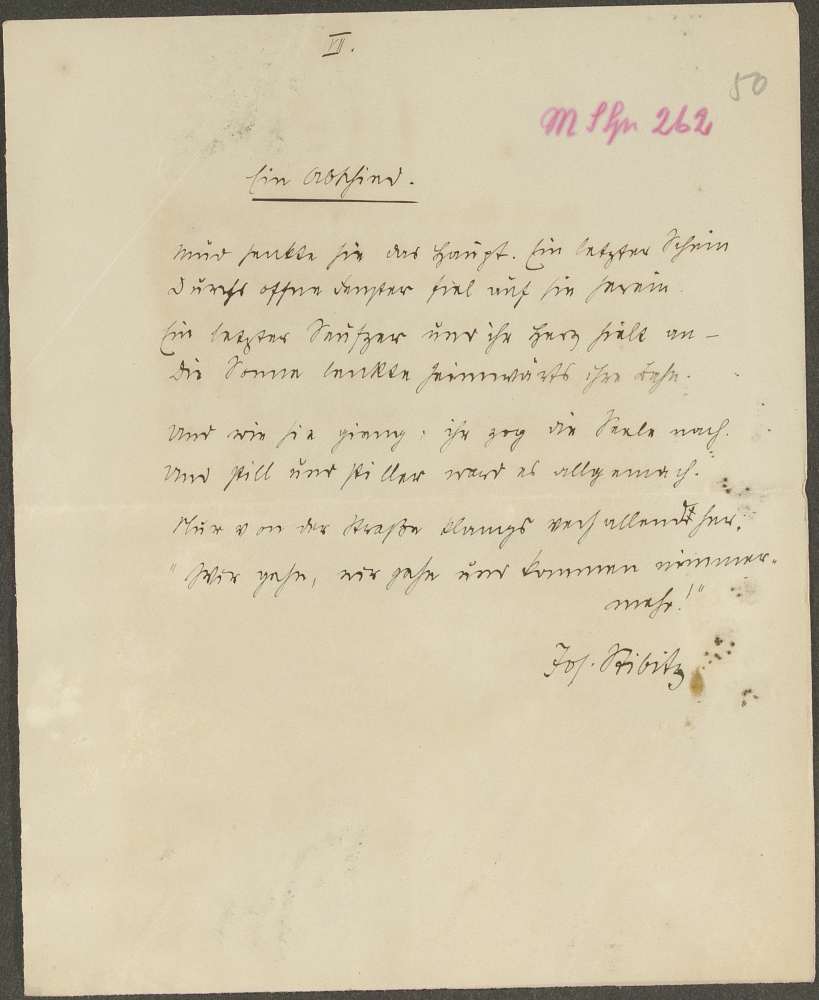 VII.
50
M S Gr 262
Ein Abschied.
Müd senkte sie das Haupt. Ein letzter Schein
Durchs offne Fenster fiel auf sie herein.
Ein letzter Seufzer und ihr Herz hielt an –
die Sonne lenkte heimwärts ihre Bahn.
Und wie sie gieng: ihr zog die Seele nach.
Und still und stiller ward es allgemach.
Nur von der Straße klangs verhallend her:
"Wir gehn, wir gehn und kommen nimmer-
mehr!"
Jos. Stibitz